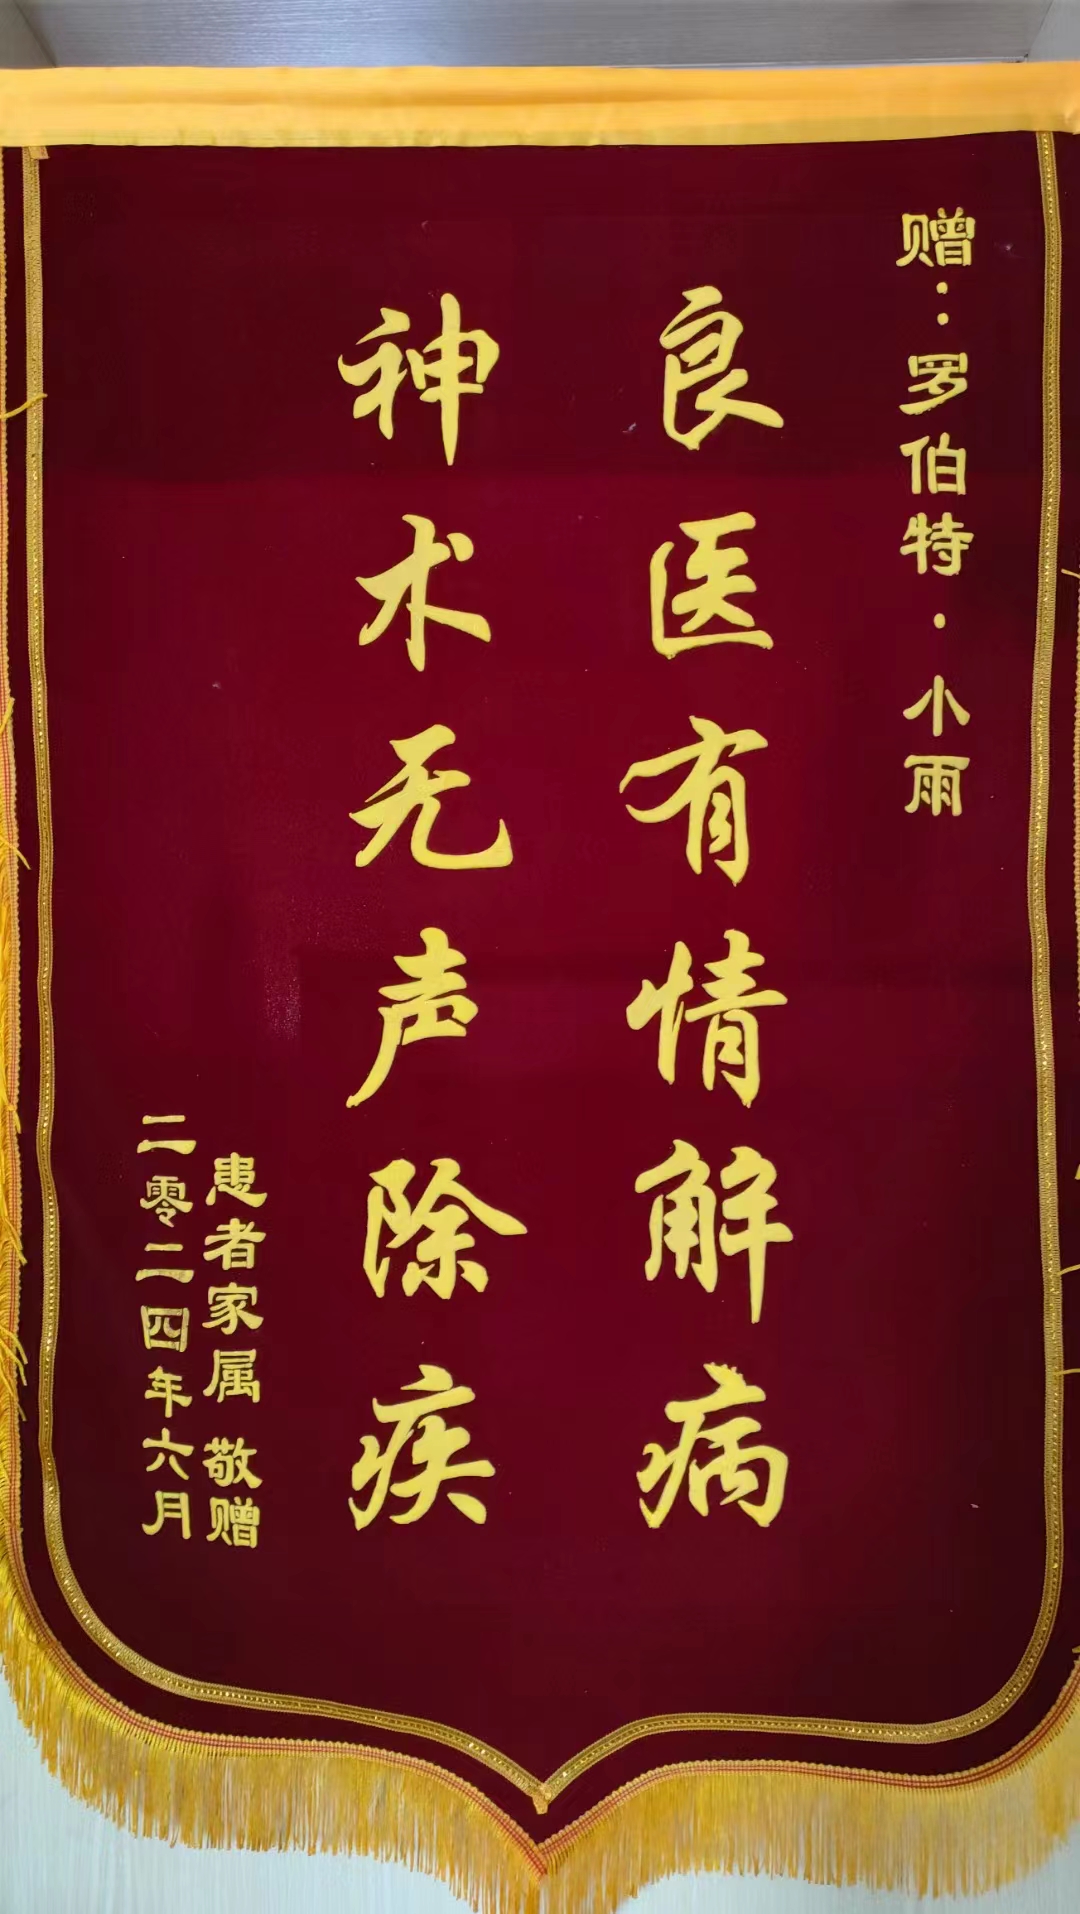 赠：罗伯特·小雨
良医有情解病
神术无声除疾
患者家属 敬赠
二零二四年六月